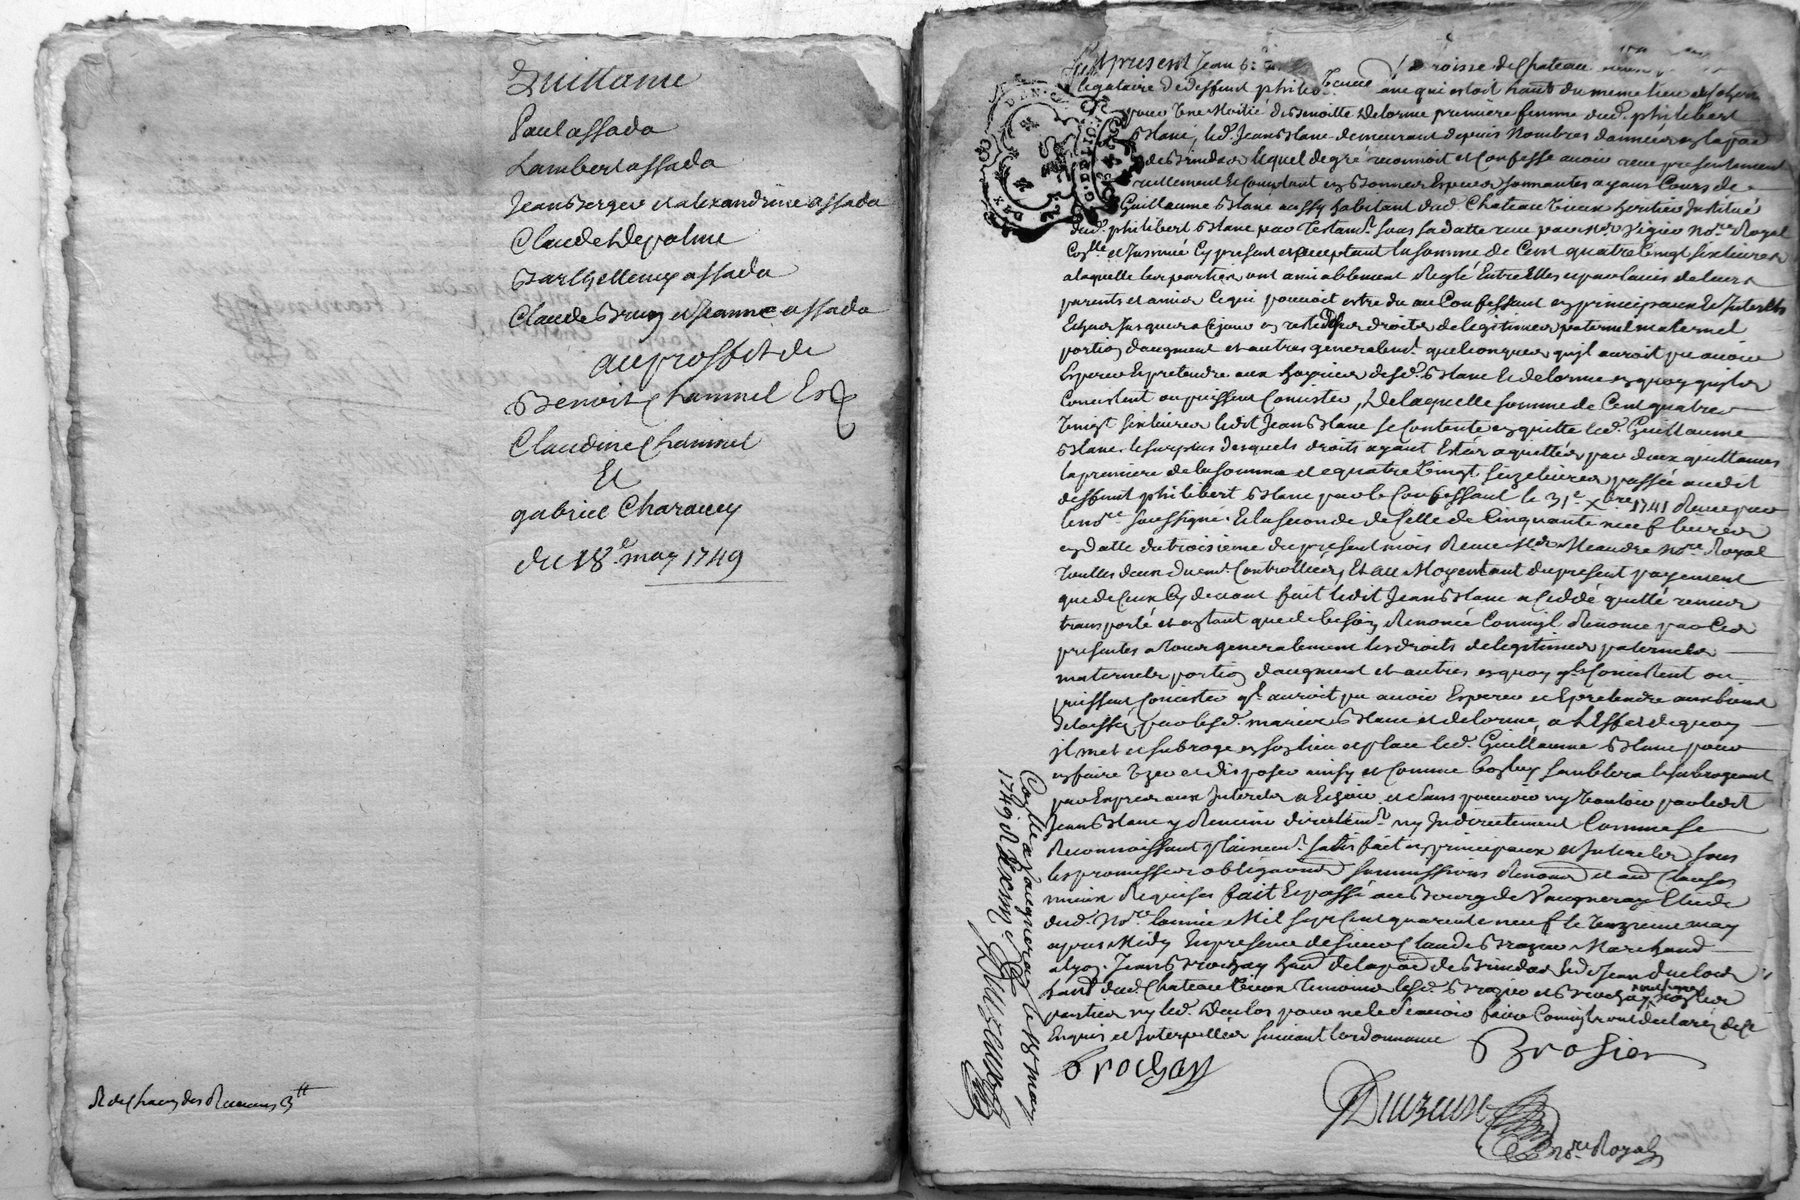 Quittance
Paul assada
Lambert assada
Jean Berger et alexandrine assada
Claude Depolme
Barthellemy assada
Claude Brun et Jeanne assada
au proffit de
Benoit Chaninel Et
Claudine Chaninel
Et
gabriel Charavey
du 18e may 1749
R de chacun des Recevans 3tt
fut present Jean
legataire de deffunt philib
pour une Moitié de Benoitte Delorme premiere femme dud. philibert
Blanc, led. Jean Blanc demeurant depuis Nombres dannées en la par
de Brindas lequel de gré reconnoit et Confesse avoir receu presentement
reellement et Comptant en Bonnes Especes sonnantes ayans Cours de
Guillaume Blanc aussy habitant dud. Chateauvieux heritier Institué
dud. philibert Blanc par Testamt. sous sa datte receu par Nore Royal
et Insinué Cy present et acceptant la somme de Cent quatre vingt six livres
a laquelle les parties ont amiablement Reglé Entre Elles et par lavis de leurs
parents et amies Ce qui pouvoit estre du au Confessant en principaux et Interets
Echeus Jusques a Ce jour en reste des droits de legitimes paternel maternel
portion daugment et autres generalemt. quelconques quil auroit pu avoir
Esperer et pretendre aux hoyries desd. Blanc et delorme en quoy quils
Consistent ou puissent Consister, De laquelle somme de Cent quatre
Vingt six livres ledit Jean Blanc se Contente et quitte led. Guillaume
Blanc le surplus desquels droits ayant Estés aquittés par deux quittances
la premiere de la somme de quatre vingt seize livres passée audit
deffunt philibert Blanc par le Confessant le 31e Xbre 1741 Receue par
le nore soussigné. Et la seconde de Celle de Cinquante neuf livres
en datte du troisieme du present mois Receue Me Meandre Nore Royal
Toutes deux duemt. Controllées, Et au Moyen tant du present payement
que de Ceux Cy devant fait ledit Jean Blanc a Ceddé quitté remis
transporté et en tant que de besoin Renoncé Comme il Renonce par Ces
presentes a tous generalement les droits de legitimes paternels
maternels portion daugment et autres en quoy ils Consistent ou
puissent Consister quil auroit pu avoir Esperer et pretendre aux biens
delaissés par lesd. mariés Blanc et delorme, a L'Effet de quoy
il met et subroge en son lieu et place led. Guillaume Blanc pour
en faire User et disposer ainsy et Comme bon luy semblera le subrogeant
par Exprès aux Interets a Echoir et sans pouvoir ny vouloir par ledit
Jean Blanc y Revenir directemt. ny Indirectement Comme se
Reconnoissant plainemt. satisfait en principaux et Interets sous
les promesses obligaons soumissions Renonons et aud Clauses
mieux Requises fait Et passé au Bourg de Vaugneray Etude
dud. Nore lannée Mil sept Cent quarente neuf le Treizieme may
apres Midy En presence de sieur Claude Brazier Marchand
a lyon. Jean Brochay hant de la par de Brindas et de Jean duclos
hant dud. Chateauvieux Temoins lesd. Brazier et Brochay
parties ny led. Duclos pour ne le scavoir faire Comme ils ont declarés de Ce
Enquis et Interpellés suivant lordonnance
Brochay
Brosier
Duzeuse
nore Royal
Conllé a Vaugneray le 18 may
1749 R